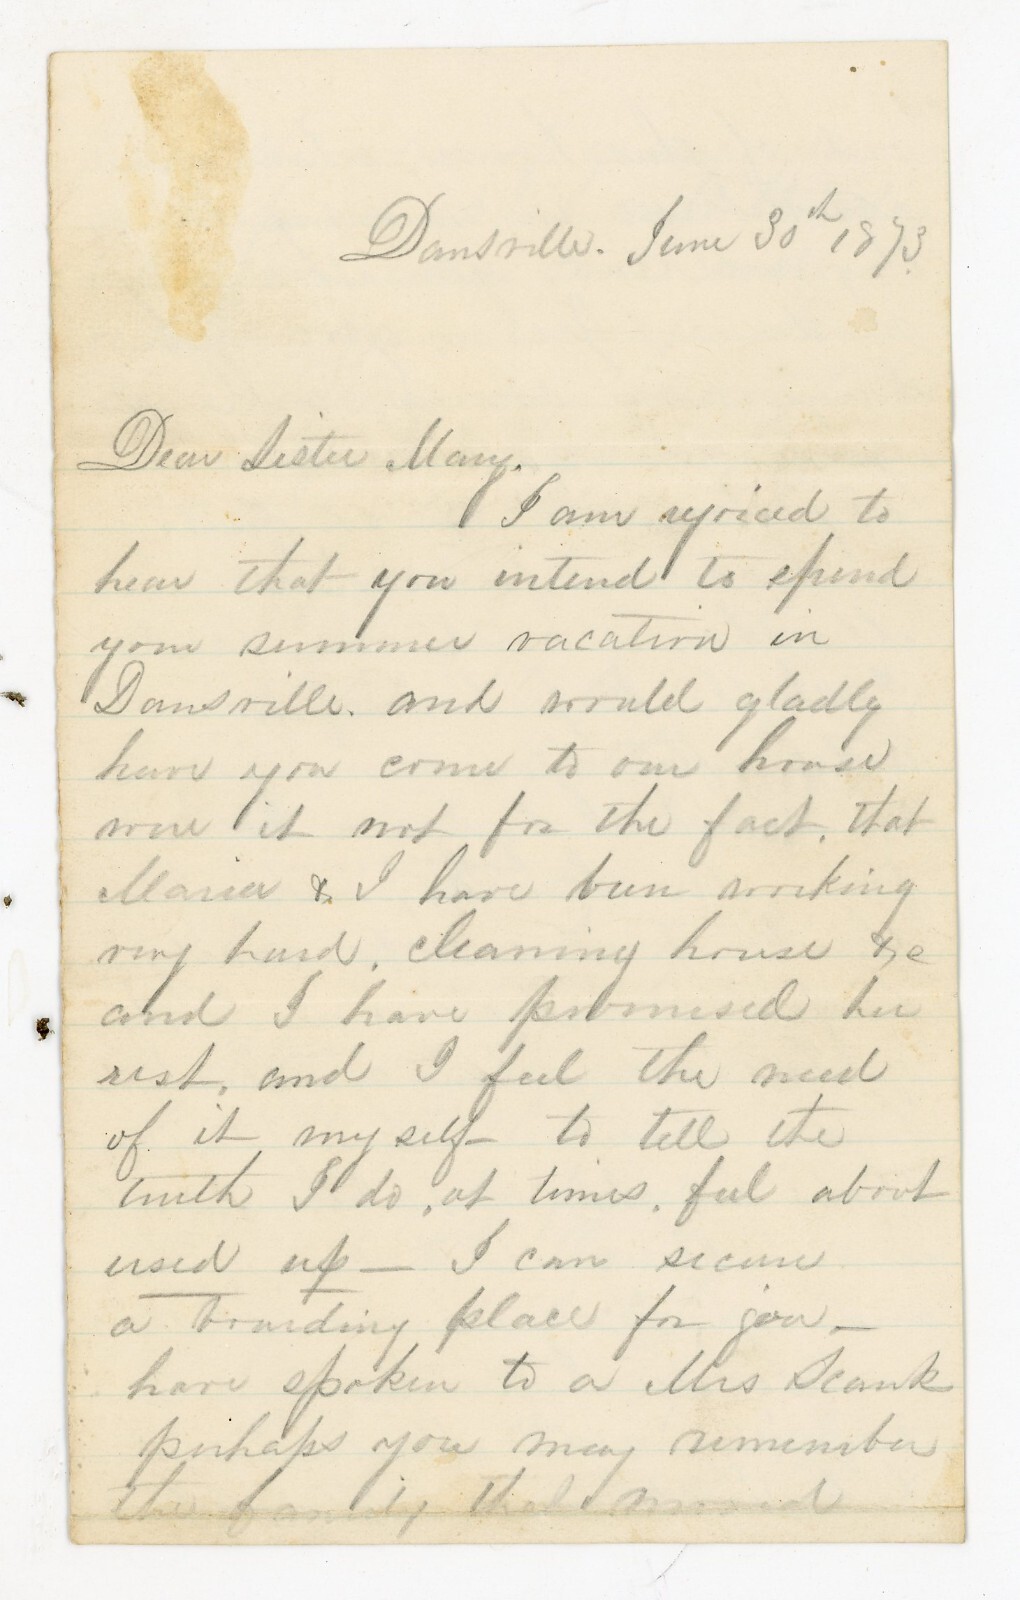 Dansville. June 30th 1873.
Dear Sister Mary.
I am rejoiced to
hear that you intend to spend
your summer vacation in
Dansville. and would gladly
have you come to our house
were it not for the fact, that
Maria & I have been working
very hard, cleaning house &c
and I have promised her
rest, and I feel the need
of it myself – to tell the
truth I do, at times, feel about
used up – I can secure
a boarding place for you –
have spoken to a Mrs
perhaps you may remember
the family that moved